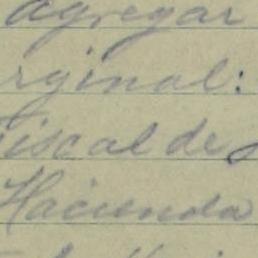 agregar
rginal:
Fiscal de
Hacienda